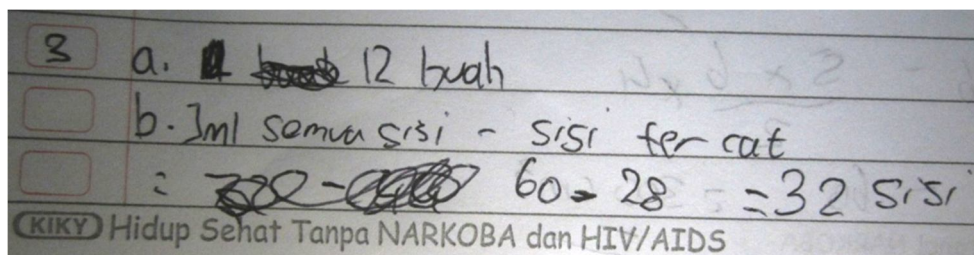 3 a. 12 buah
b. Jml semua sisi - sisi ter cat
= 60 - 28 = 32 sisi
KIKY Hidup Sehat Tanpa NARKOBA dan HIV/AIDS